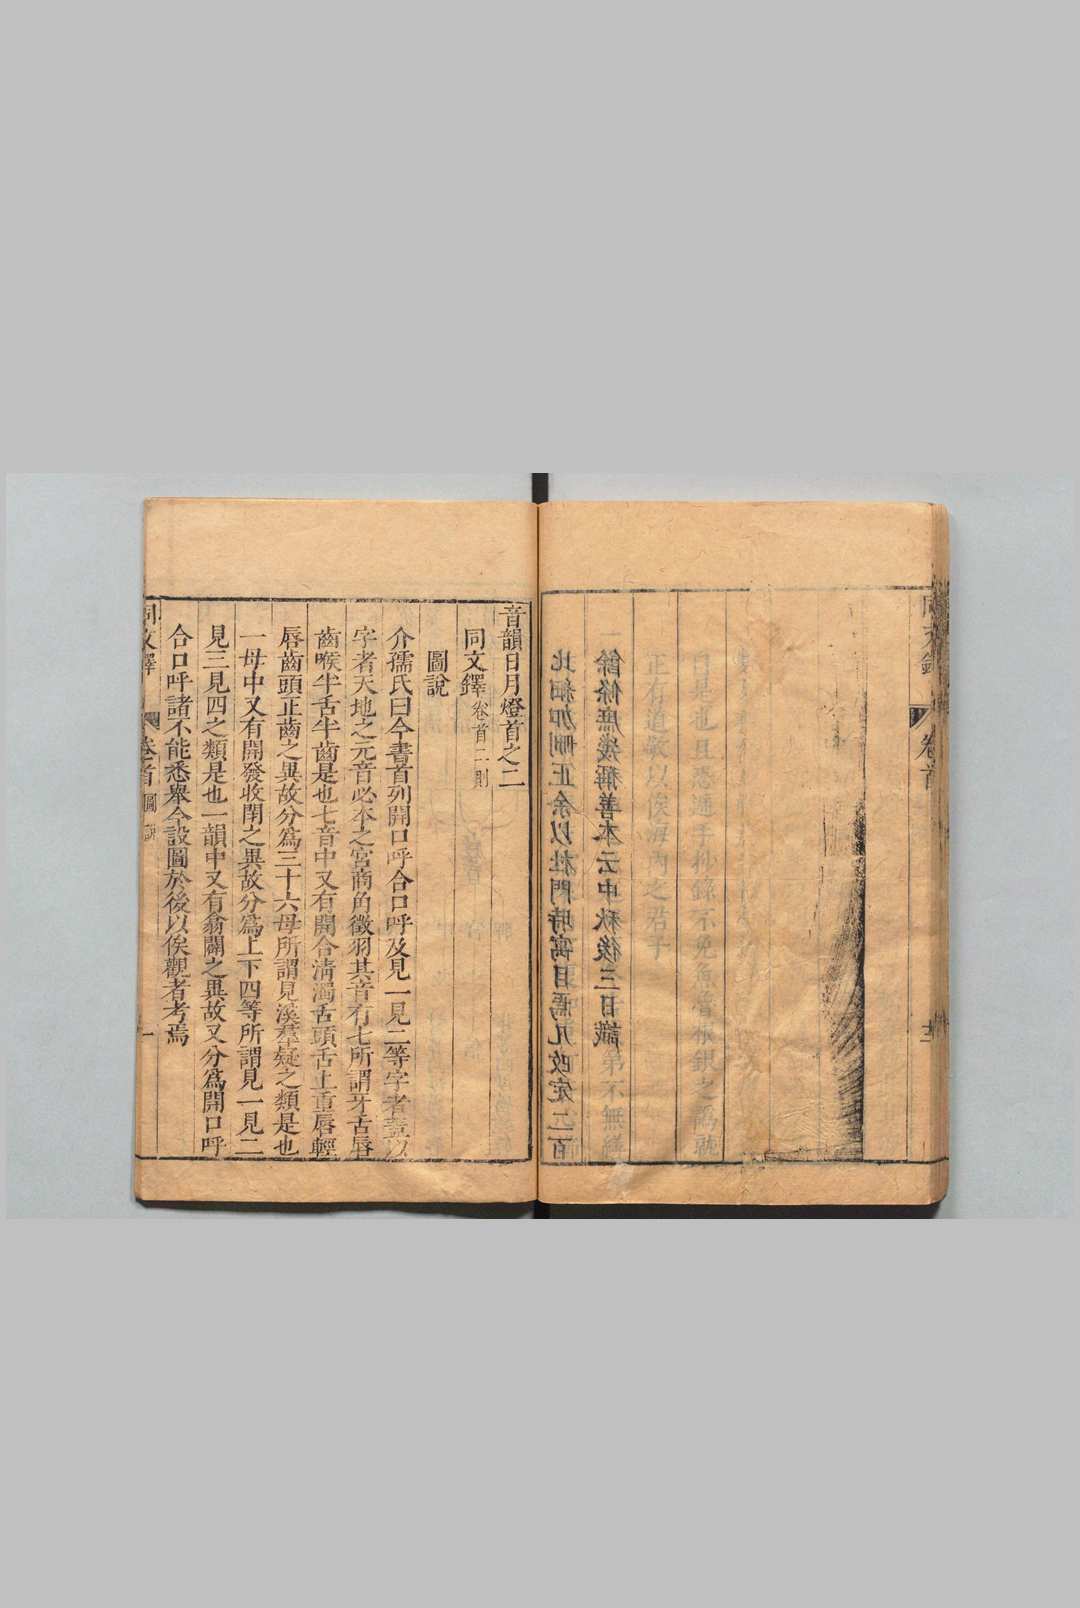 同文鐸
卷首
正有道敬以俟海內之君子
餘條庶幾稱善本云中秋後三日識
比細加刪正余以杜門時寓目焉凡改定二百
音韻日月燈首之二
同文鐸卷首二則
圖說
介孺氏曰今書首列開口呼合口呼及見一見二等字者蓋以
字者天地之元音必本之宮商角徵羽其音有七所謂牙舌唇
齒喉半舌半齒是也七音中又有開合清濁舌頭舌上重唇輕
唇齒頭正齒之異故分為三十六母所謂見溪羣疑之類是也
一母中又有開發收閉之異故分為上下四等所謂見一見二
見三見四之類是也一韻中又有翕闢之異故又分為開口呼
合口呼諸不能悉舉今設圖於後以俟觀者考焉
同文鐸
卷首
圖說
一